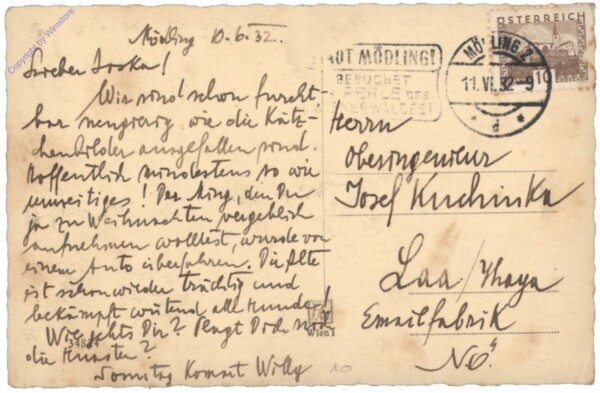 Copyright by Winstore
Mödling 10.6.32.
Lieber Joska!
Wir sind schon furcht-
bar neugierig wie die Kätz-
chenbilder ausgefallen sind.
Hoffentlich mindestens so wie
! Der Ming, den Du
ja zu Weihnachten vergeblich
aufnehmen wolltest, wurde von
einem Auto überfahren. Die Alte
ist schon wieder trächtig und
bekämpft wütend alle Hunde!
Wie gehts Dir? Plagt Dich noch
der Husten?
Sonntag kommt Willy
STADT MÖDLING!
BESUCHET
PERLE DES
WIENERWALDES!
ÖSTERREICH
10
MÖDLING 2
11.VI.32-9
* d *
Herrn
Oberingenieur
Josef Kuchinka
Laa/Thaya
Emailfabrik
NÖ.
Wien I